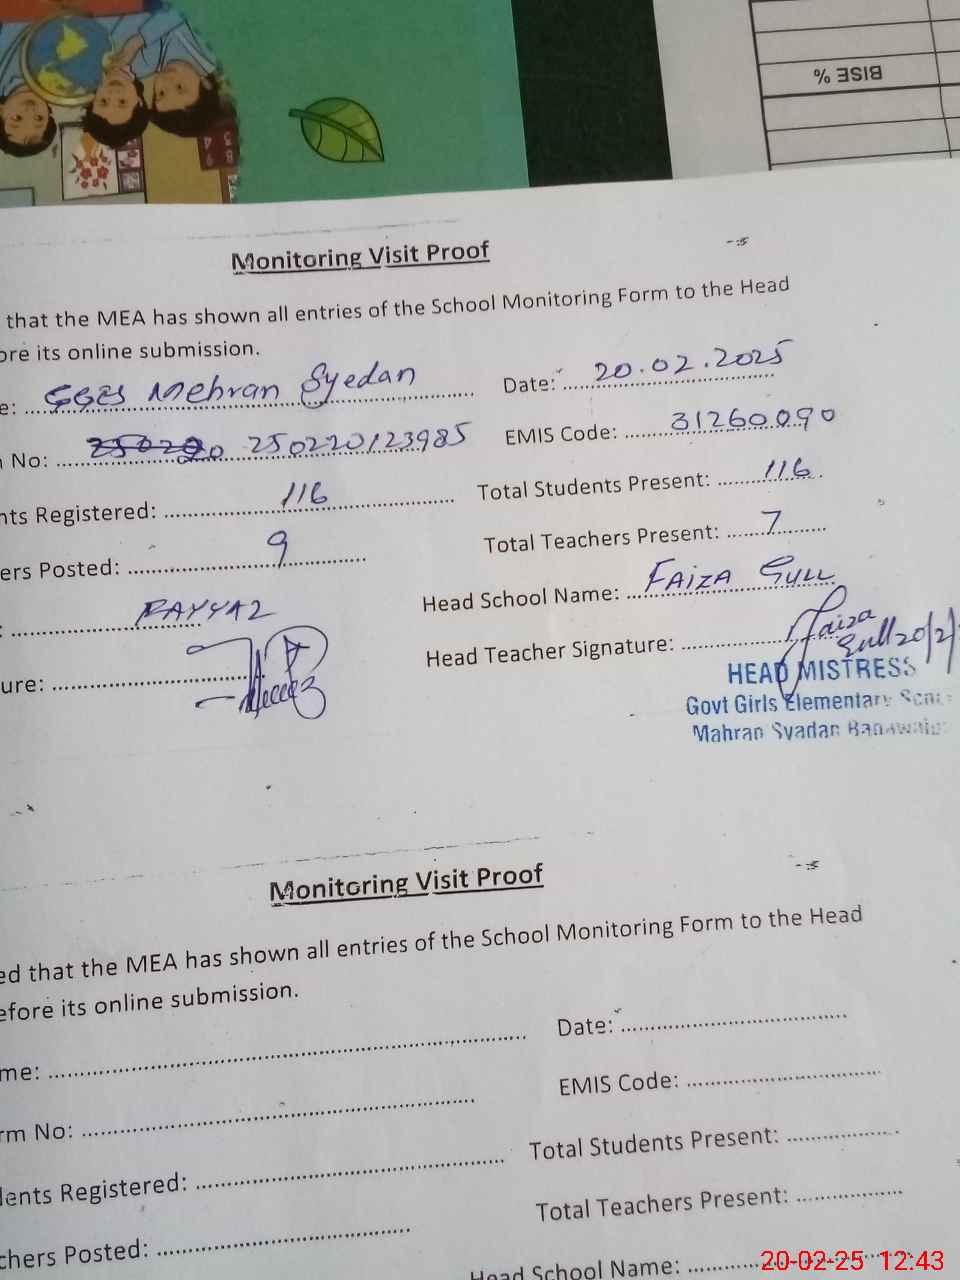 BISE %
Monitoring Visit Proof
that the MEA has shown all entries of the School Monitoring Form to the Head
ore its online submission.
e: GGES Mehran Syedan Date: 20.02.2025
No: 250220123985 EMIS Code: 31260090
nts Registered: 116 Total Students Present: 116
ers Posted: 9 Total Teachers Present: 7
: FAYYAZ Head School Name: FAIZA GULL
ure: Head Teacher Signature: Faiza Gull 20/2/
HEAD MISTRESS
Govt Girls Elementary
Mahran Syadan
Monitoring Visit Proof
ed that the MEA has shown all entries of the School Monitoring Form to the Head
efore its online submission.
me: Date:
rm No: EMIS Code:
lents Registered: Total Students Present:
chers Posted: Total Teachers Present:
Head School Name:
20-02-25 12:43